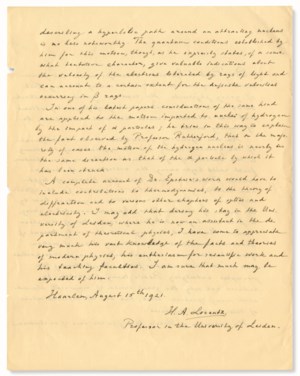 describing a hyperbolic path around an attracting nucleus
is no less noteworthy. The quantum conditions established by
him for this motion, though, as he expressly states, of a some-
what tentative character, give valuable indications about
the velocity of the electrons liberated by rays of light and
can account to a certain extent for the definite velocities
occurring in β rays.
In one of his latest papers considerations of the same kind
are applied to the motion imparted to nuclei of hydrogen
by the impact of α particles; he tries in this way to explain
the fact observed by Professor Rutherford, that in the major-
ity of cases the motion of the hydrogen nucleus is nearly in
the same direction as that of the α particle by which it
has been struck.
A complete account of Dr. Epstein's work would have to
include contributions to thermodynamics, to the theory of
diffraction and to various other chapters of optics and
electricity. I may add that during his stay in the Uni-
versity of Leiden, where he is now an assistant in the de-
partment of theoretical physics, I have come to appreciate
very much his vast knowledge of the facts and theories
of modern physics, his enthusiasm for scientific work and
his teaching faculties. I am sure that much may be
expected of him.
Haarlem, August 18th 1921.
H. A. Lorentz
Professor in the University of Leiden.